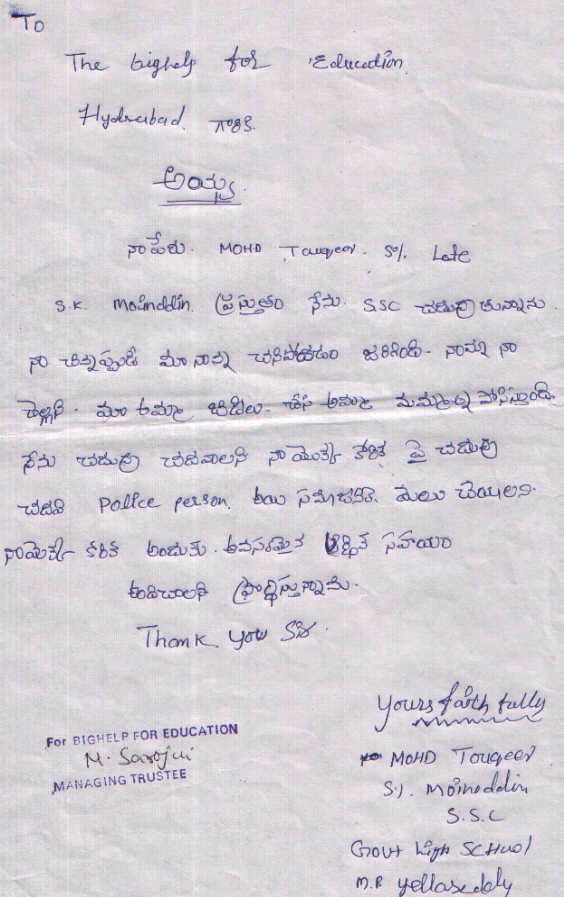 To
The bighelp for Education
Hyderabad. గారికి
అయ్య.
నా పేరు. MOHD Touqeer. S/o. Late
S.K. Moinddin. ప్రస్తుతం నేను. SSC చదువుతున్నాను.
నా చిన్నప్పుడే మా నాన్న చనిపోవడం జరిగింది. నాన్ను నా
మా అమ్మా బీడీలు. చేసి అమ్మా మమ్మల్ని పోసిస్తుంది.
నేను చదువు చదవాలని నా యొక్క కోరిక పై చదువు
చదివి Police person. అయి మేలు చేయలని.
నాయొక్క కోరిక అందుకు. అవసరమైన ఆర్థిక సహాయం
ప్రార్థిస్తున్నాను.
Thank you సర్.
Yours faithfully
MOHD Touqeer
S/. Moinoddin
S.S.C
Govt High School
M.P yellareddy
For BIGHELP FOR EDUCATION
M. Sarojui
MANAGING TRUSTEE